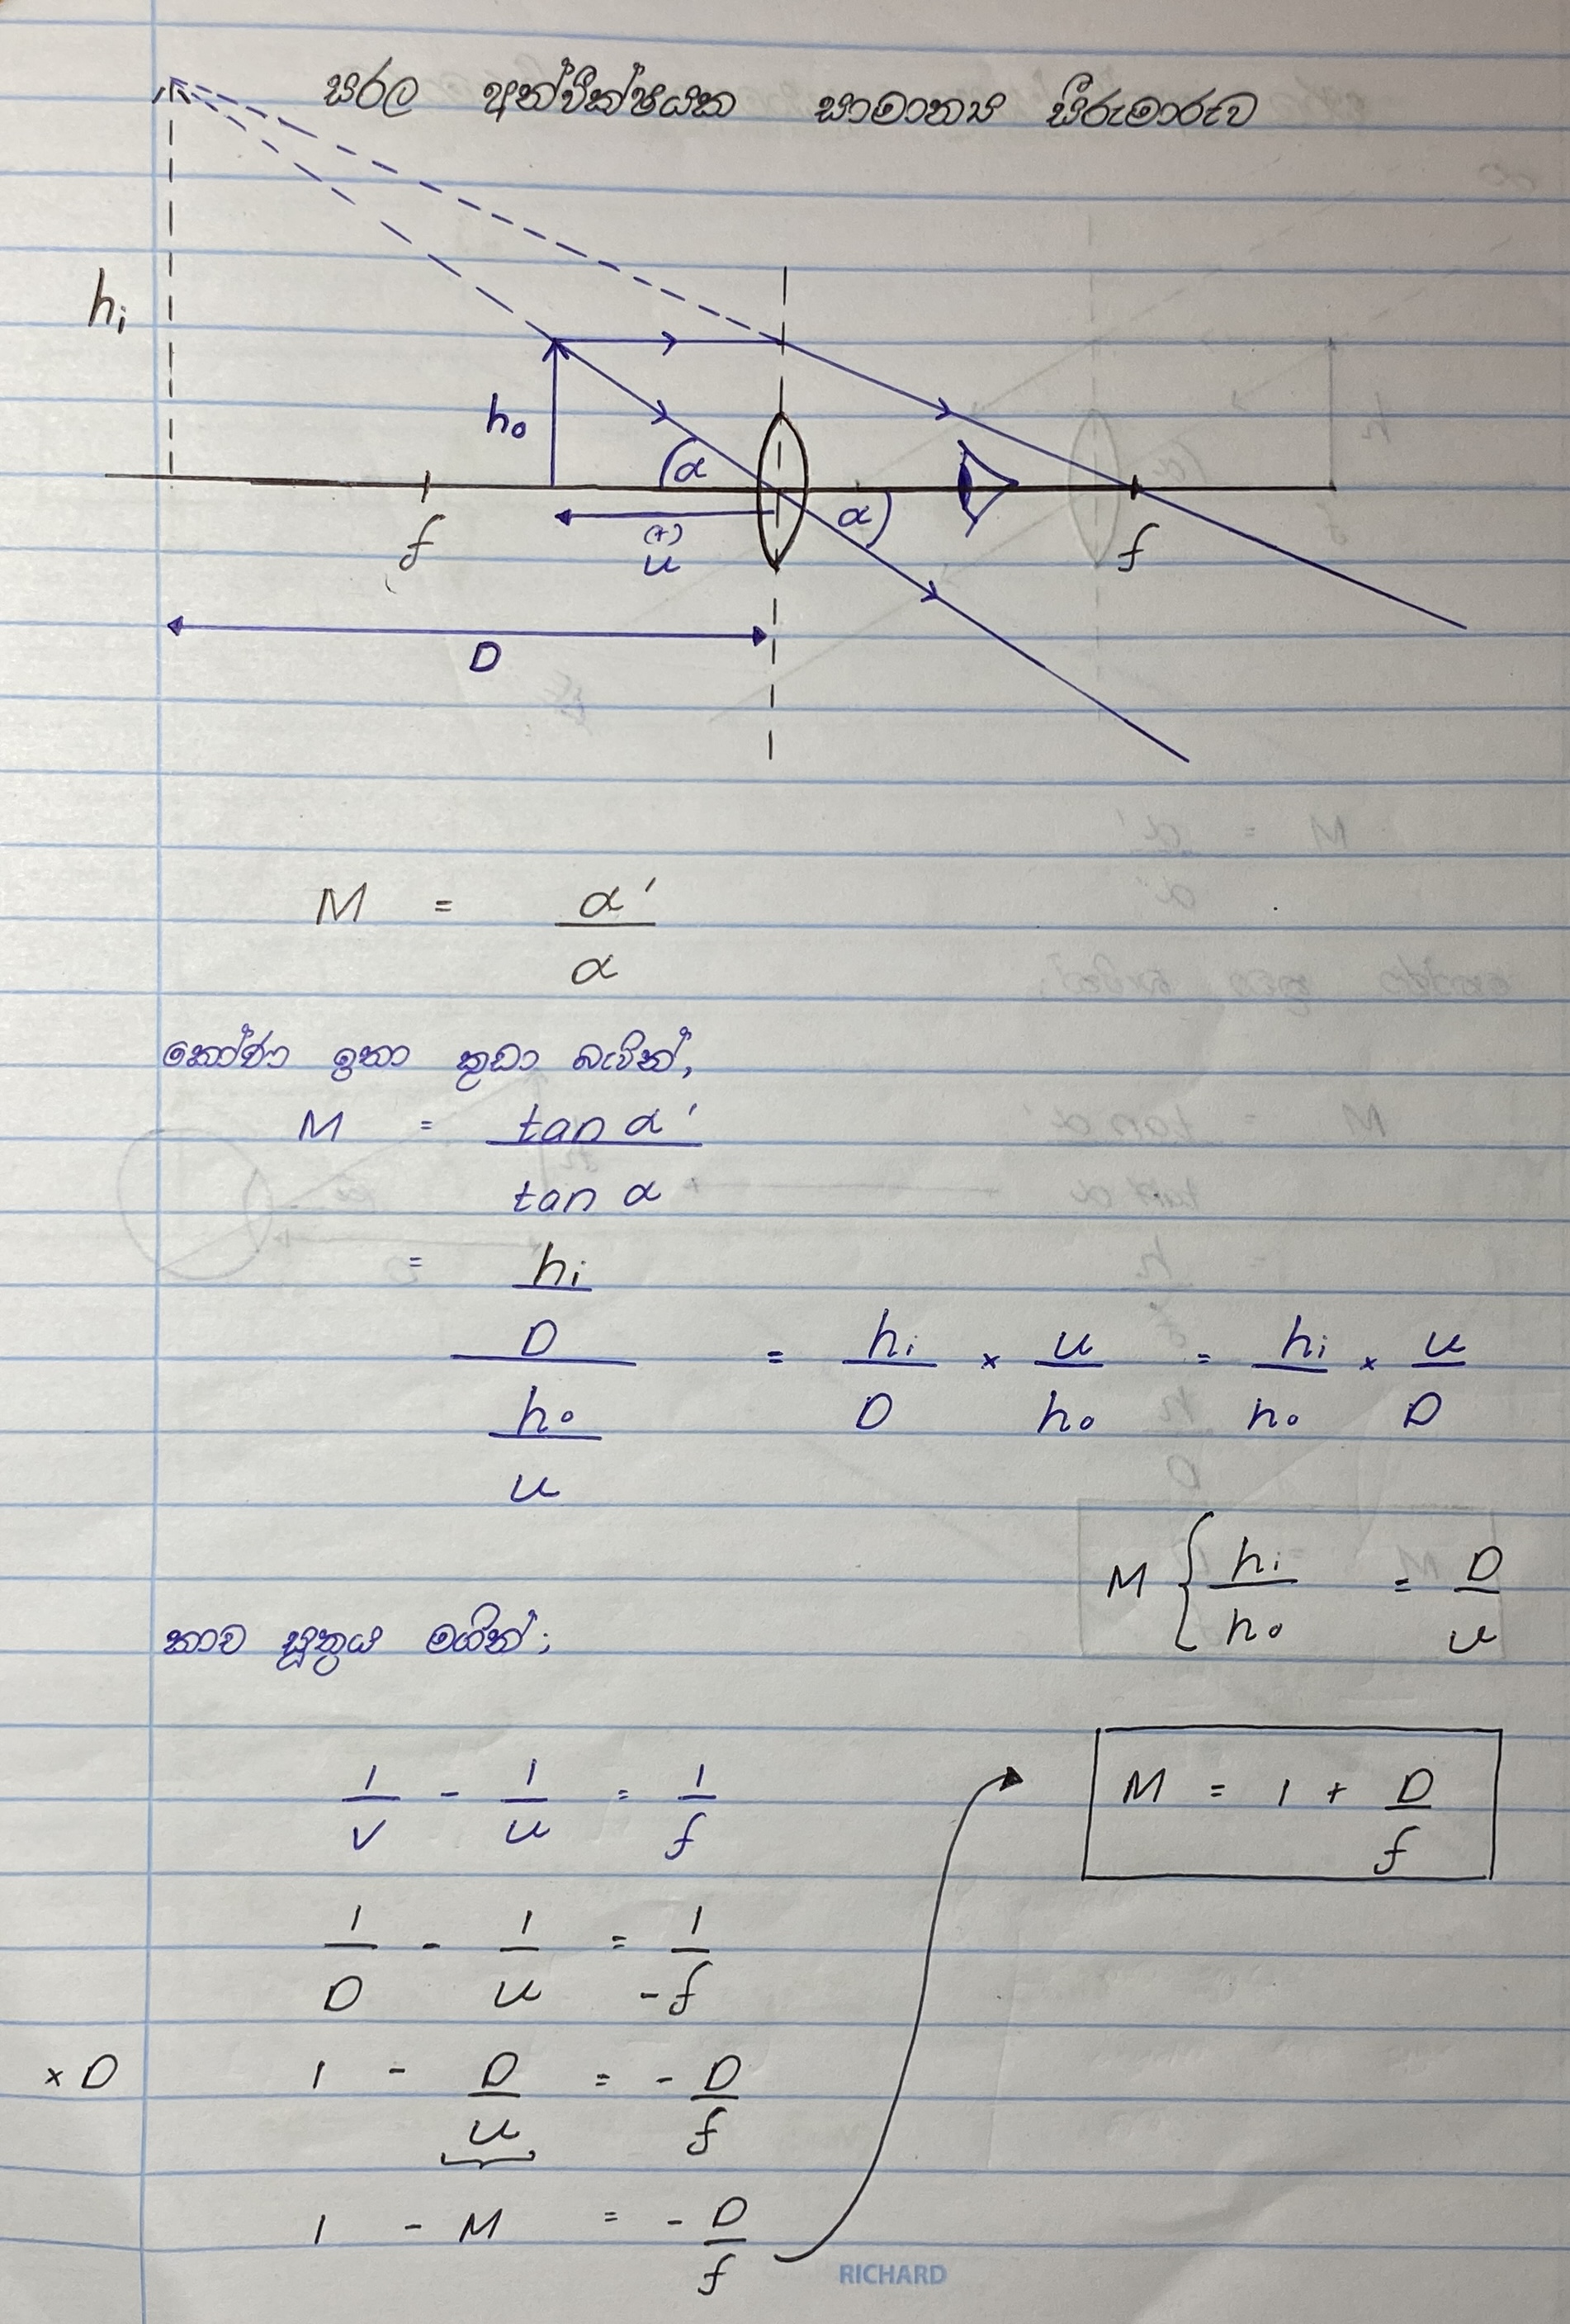 සරල අන්වීක්ෂයක සාමාන්‍ය සීරුමාරුව
hᵢ
h₀
α
α
f
(+)
u
f
D
M = α' / α
කෝණ ඉතා කුඩා බැවින්,
M = tan α' / tan α
= (hᵢ / D) / (h₀ / u) = hᵢ / D × u / h₀ = hᵢ / h₀ × u / D
M { hᵢ / h₀ = D / u
කාච සූත්‍රය මගින්;
1 / v - 1 / u = 1 / f
M = 1 + D / f
1 / D - 1 / u = 1 / -f
×D 1 - D / u = - D / f
1 - M = - D / f
RICHARD